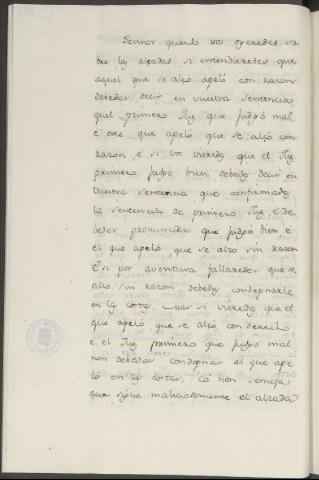 Sennor quando vos oyeredes so-
bre las alçadas si entendieredes que
aquel que se alço apeló con razon
debedes decir en vuestra sentencia
quel primero Juez que judgó mal
e ese que apeló que se alçó con
razon e si vos vieredes que el Juez
primero judgó bien debedes decir en
vuestra sentencia que confirmades
la sentencia de primero Juez, e de-
bedes pronunciar que judgó bien e
el que apeló que se alzo sin razon
E si por aventura fallaredes que se
alzo sin razon debedes condepnarle
en las costas. mas si vieredes que el
que apeló que se alçó con derecho
e el Juez primero que judgó mal
non debedes condepnar al que ape-
ló en las costas, ca non semeja
que sigue maliciosamente el alzada